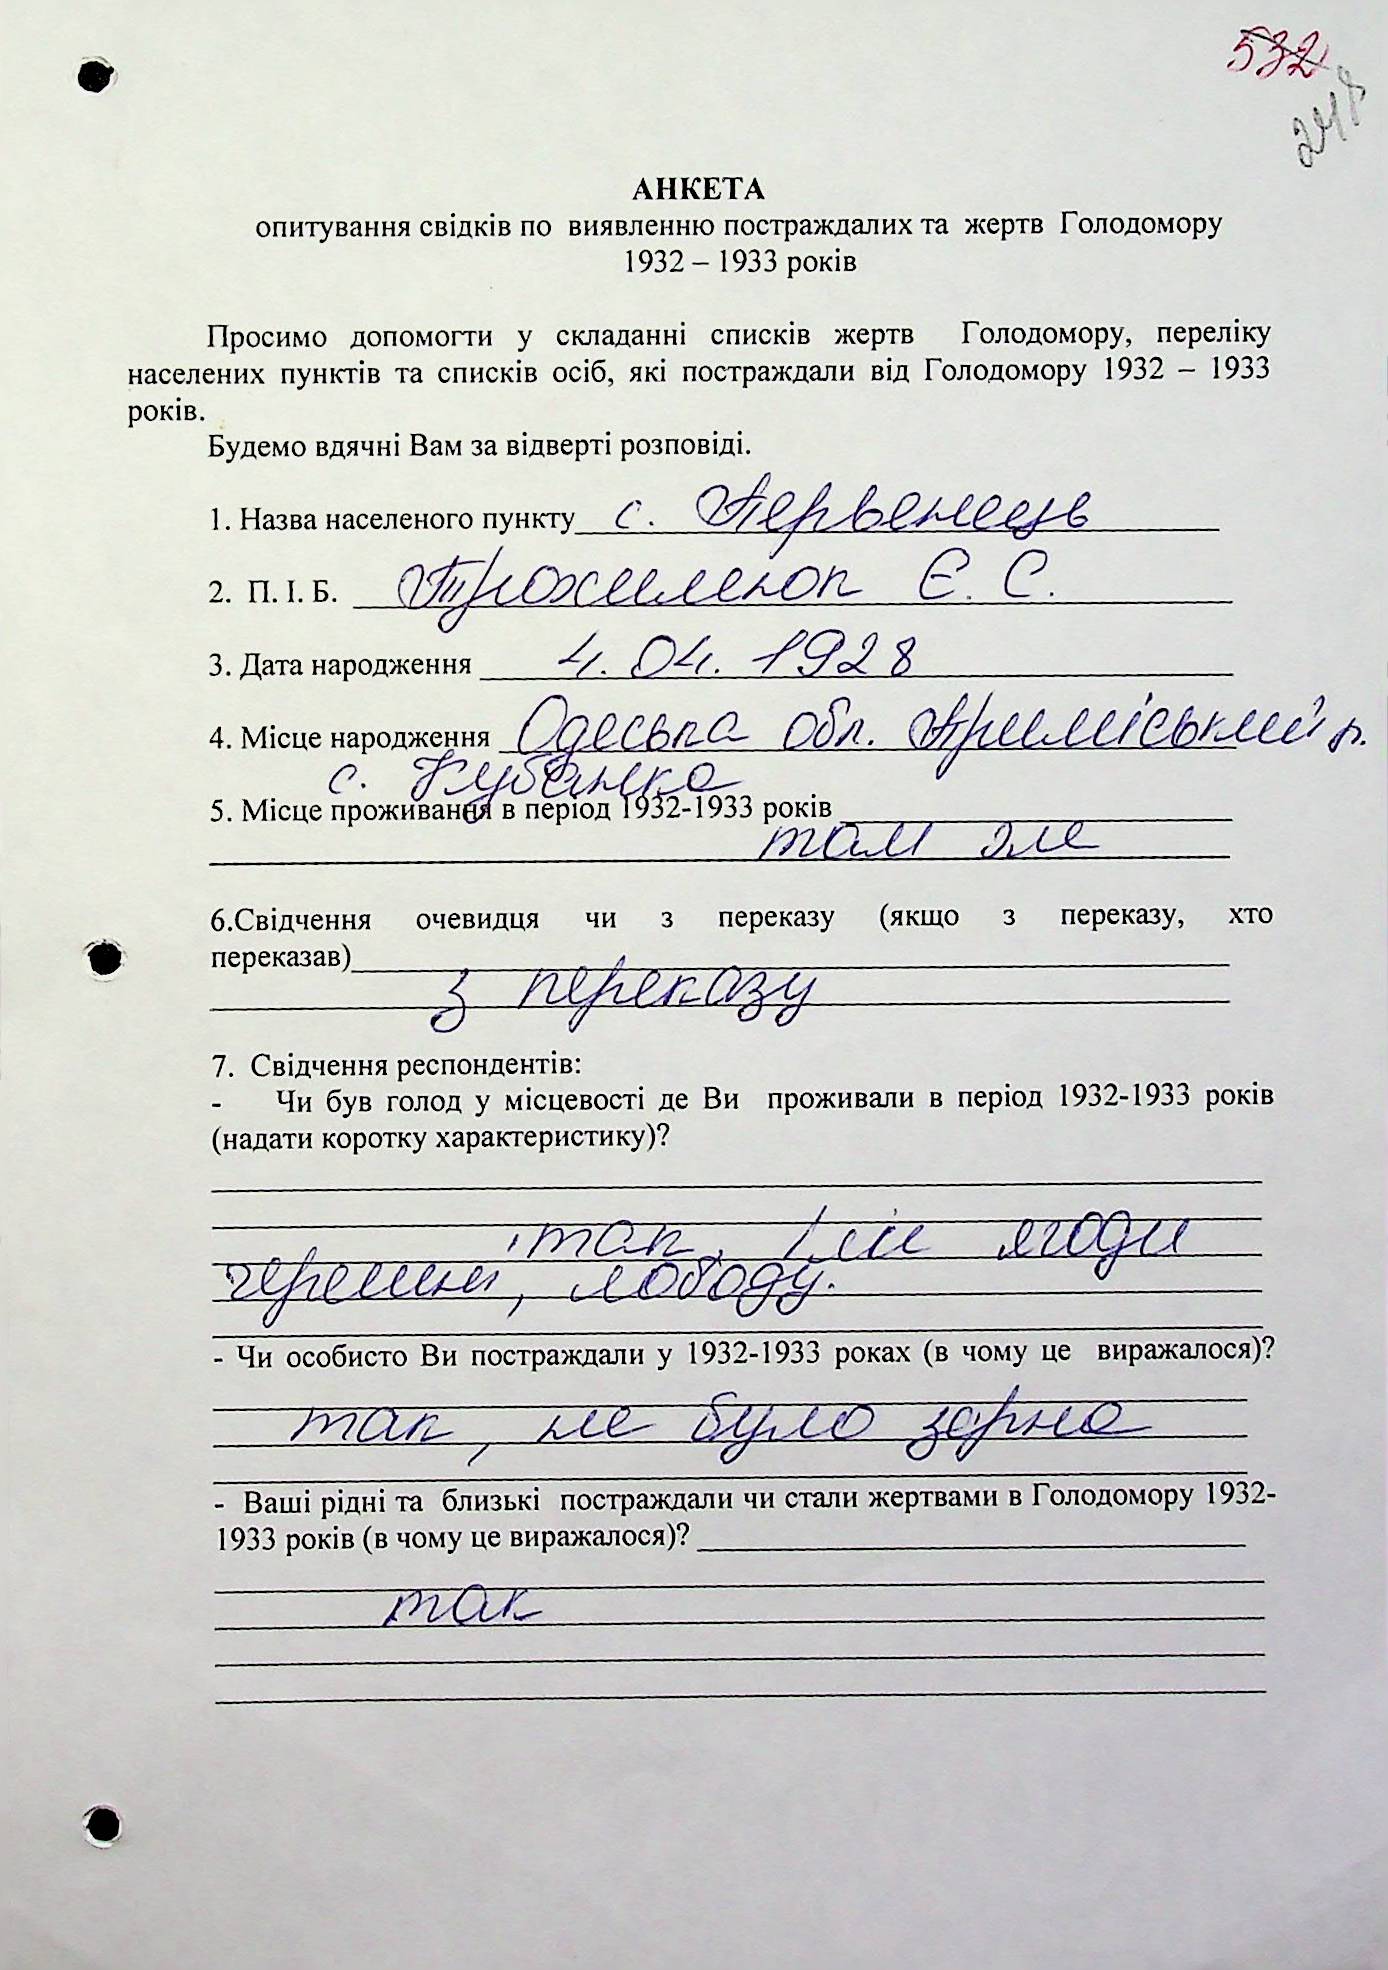 532
248
АНКЕТА
опитування свідків по виявленню постраждалих та жертв Голодомору
1932 – 1933 років
Просимо допомогти у складанні списків жертв Голодомору, переліку
населених пунктів та списків осіб, які постраждали від Голодомору 1932 – 1933
років.
Будемо вдячні Вам за відверті розповіді.
1. Назва населеного пункту с. Первенець
2. П. І. Б. Є. С.
3. Дата народження 4.04.1928
4. Місце народження Одеська обл. Приміський р.
с. Кубанка
5. Місце проживання в період 1932-1933 років
там же
6.Свідчення очевидця чи з переказу (якщо з переказу, хто
переказав)
з переказу
7. Свідчення респондентів:
- Чи був голод у місцевості де Ви проживали в період 1932-1933 років
(надати коротку характеристику)?
так, їли ягоди
черешні, лободу.
- Чи особисто Ви постраждали у 1932-1933 роках (в чому це виражалося)?
так, не було зерна
- Ваші рідні та близькі постраждали чи стали жертвами в Голодомору 1932-
1933 років (в чому це виражалося)?
так